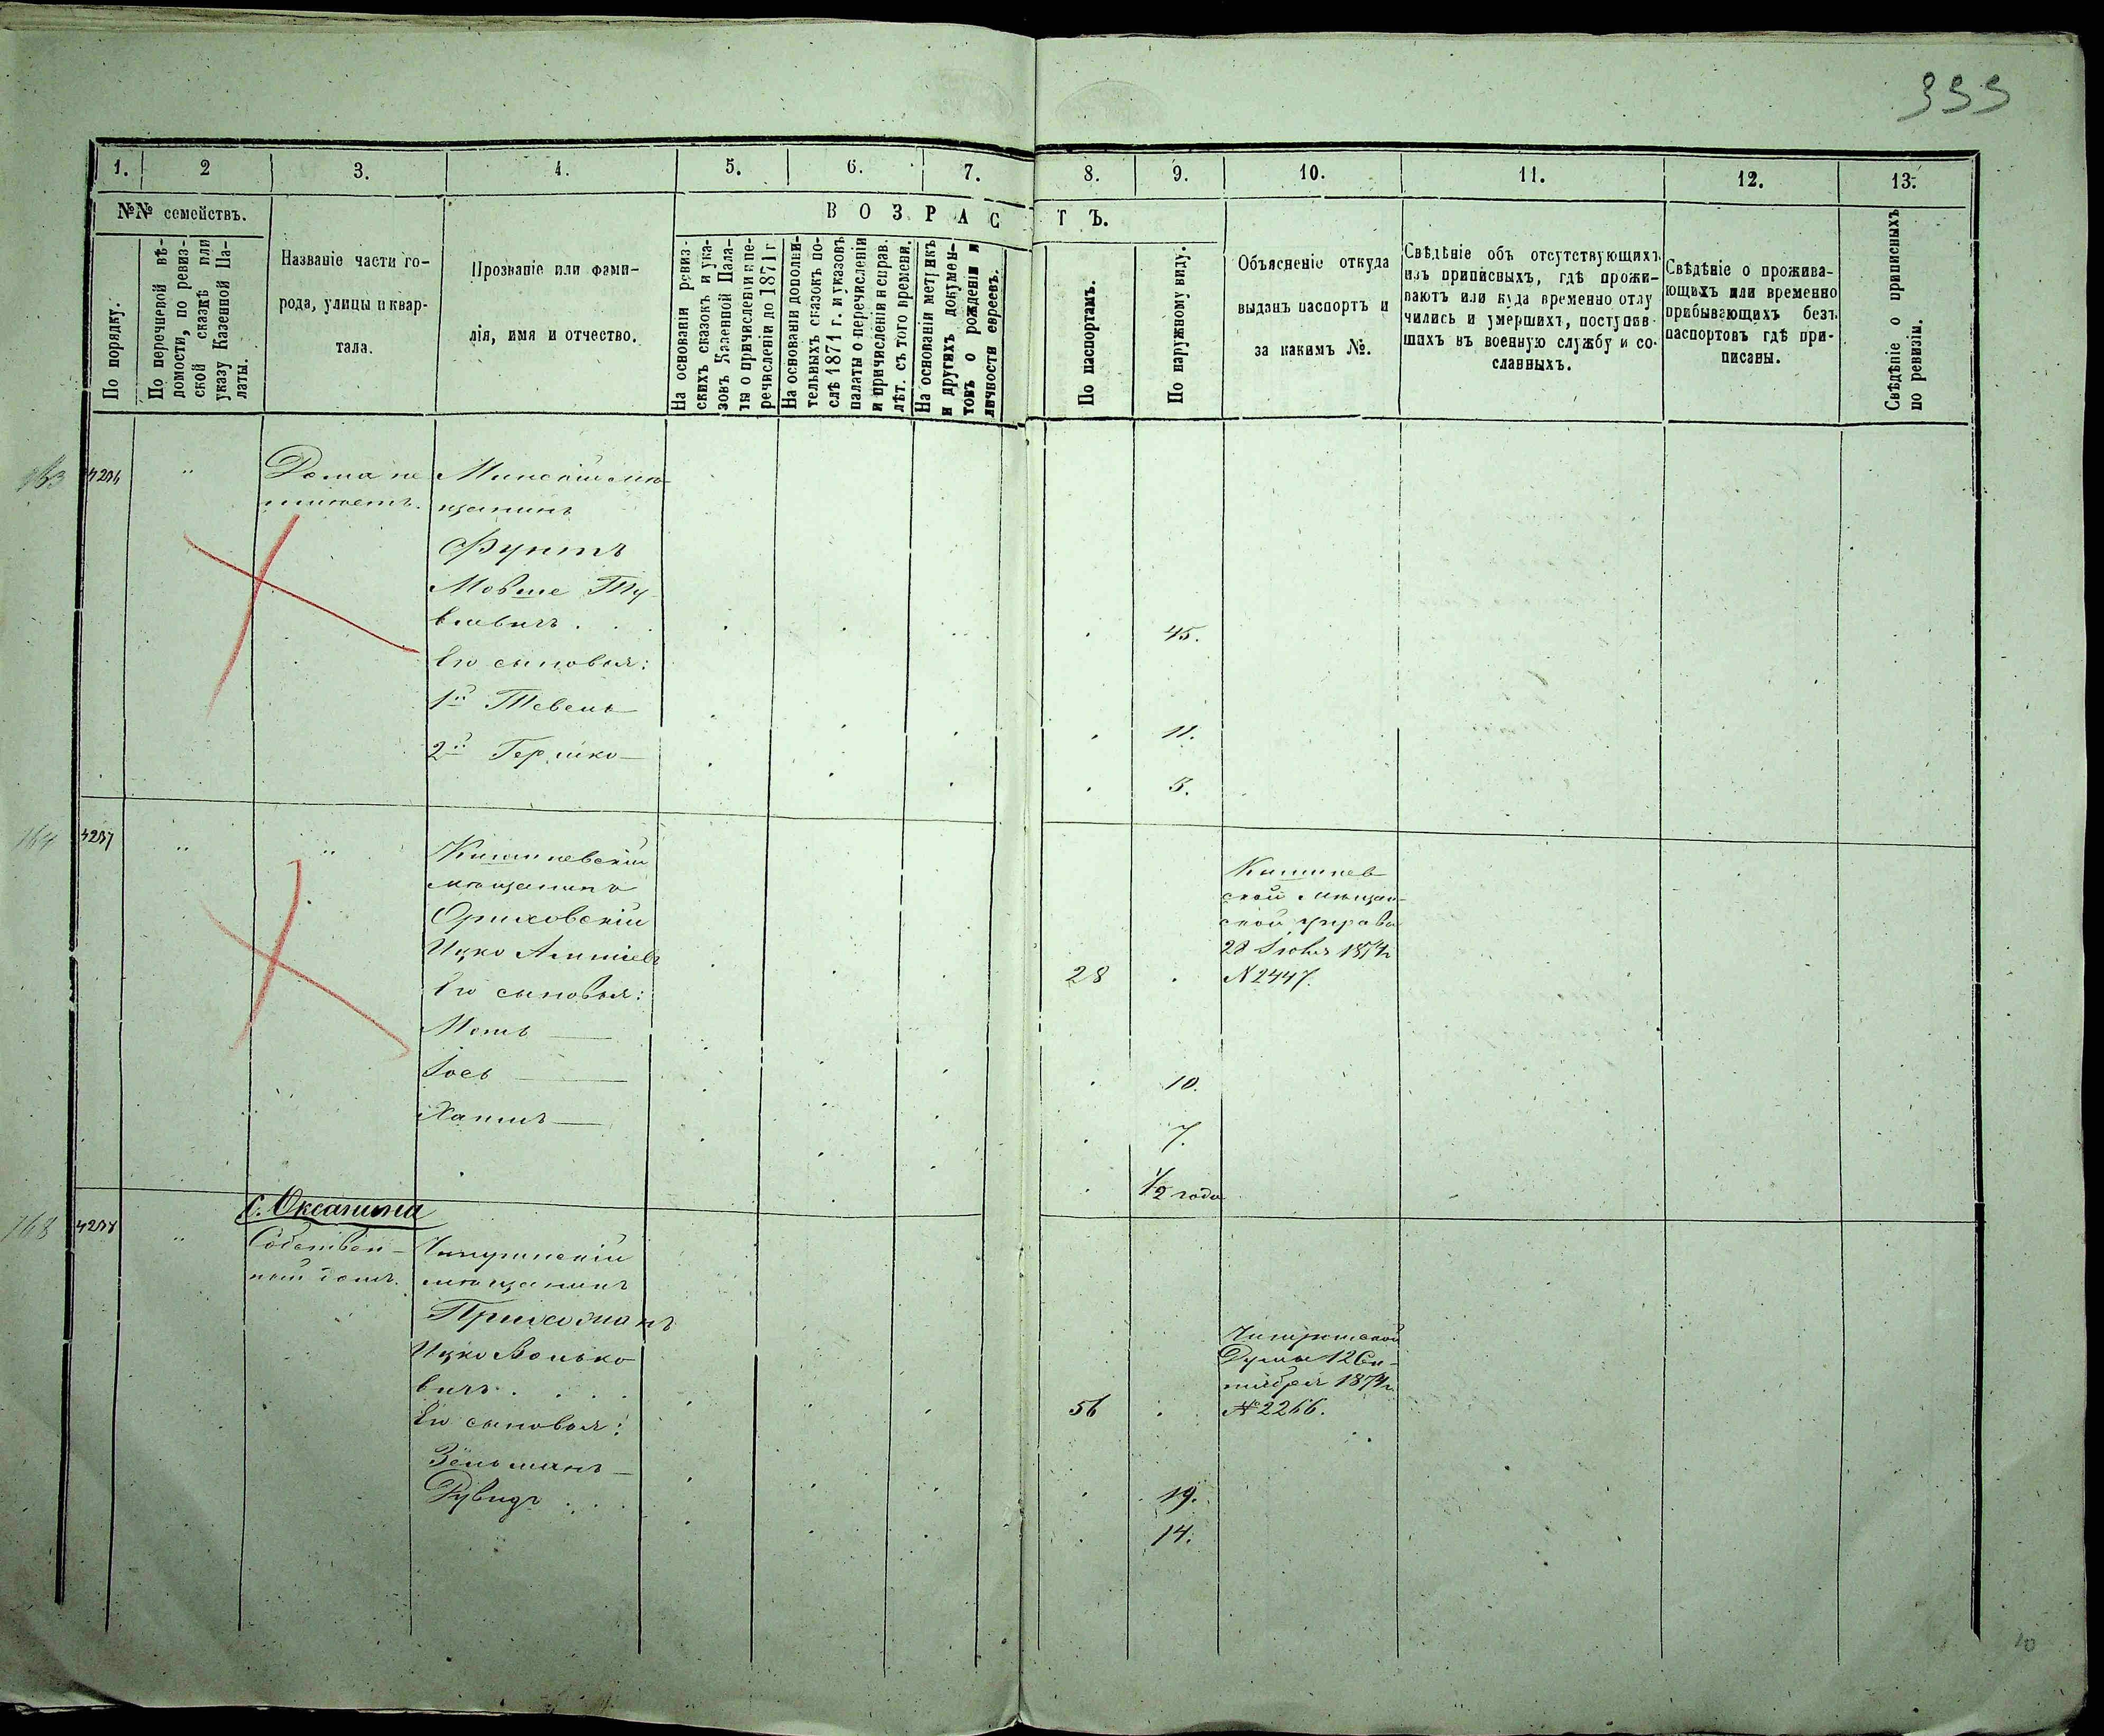 333
1. 2 3. 4. 5. 6. 7. 8. 9. 10. 11. 12. 13.
№№ семействъ.
По порядку.
По перечневой вѣ-
домости, по ревиз-
ской сказкѣ или
указу Казенной Па-
латы.
Названіе части го-
рода, улицы и квар-
тала.
Прозваніе или фами-
лія, имя и отчество.
ВОЗРАСТЪ.
На основаніи ревиз-
скихъ сказокъ и ука-
зовъ Казенной Пала-
ты о причисленіи и пе-
речисленіи до 1871 г
На основаніи дополни-
тельныхъ сказокъ по-
слѣ 1871 г. и указовъ
палаты о перечисленіи
и причисленіи и справ.
лѣт. съ того времени.
На основаніи метрикъ
и другихъ докумен-
товъ о рожденіи и
личности евреевъ.
По паспортамъ.
По наружному виду.
Объясненіе откуда
выданъ паспортъ и
за какимъ №.
Свѣдѣніе объ отсутствующихъ
изъ приписныхъ, гдѣ прожи-
ваютъ или куда временно отлу
чились и умершихъ, поступив-
шихъ въ военную службу и со-
сланныхъ.
Свѣдѣніе о прожива-
ющихъ или временно
прибывающихъ безъ
паспортовъ гдѣ при-
писаны.
Свѣдѣніе о приписныхъ
по ревизіи.
163 4236 " Дома не
имѣетъ.
Минскій мѣ-
щанинъ
Фунтъ
Мовше Ту-
вlевичъ . . 45.
Его сыновья:
1й Тевель 11.
2й Гершко 5.
164 4237 " "
Кишиневскій
мѣщанинъ
Ориховскій
Ицко
28
Кишинев
ской мѣщан-
ской управы
28 Іюля 1874 г.
№ 2447.
Его сыновья:
10.
Іось 7.
1/2 года
с. Оксанина
168 4238 " Собствен-
ный домъ.
мѣщанинъ
Прихожанъ
Ицко Волько
вичъ . . . . 56
Думы 12 Сен-
тября 1874 г.
№ 2266.
Его сыновья:
Зельманъ 19.
Рувидъ . . . 14.
10